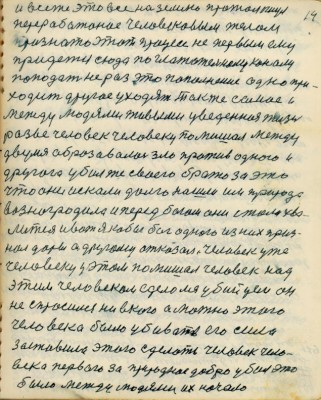 и всеже это все на землю протолкнул
переработаное человековым телом
признато этот процес не первым ему
придется сюда по глотательному каналу
попадат не раз это пополнение одно при-
ходит другое уходят также самое и
между людями живыми уведенная жизн
разве человек человеку помишал между
двумя образавалас зло против одного и
другого убилте своего брата за это
что они искали долго нашли их природа
вазногродила и перед богом они стали хва-
лится и вотякобы бог одного из них приз-
нал дары а другому отказал, человек уже
человеку у этом помишал человек над
этим человеком сделал убийцем он
не спросился ни в кого а можно этого
человека было убиват его сила
заставила этого сделат человек чело-
века первого за природное добро убил это
было между людями их начало